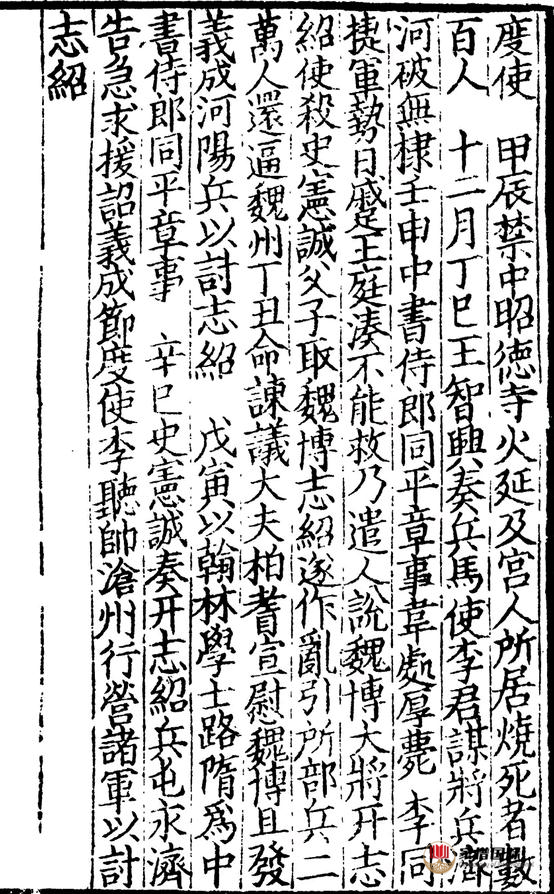 度使　甲辰禁中昭徳寺火延及宮人所居燒死者數
百人　十二月丁巳王智興奏兵馬使李君謀將兵濟
河破無棣壬申中書侍郎同平章事韋處厚薨　李同
捷軍勢日蹙王庭湊不能救乃遣人說魏博大將亓志
紹使殺史憲誠父子取魏博志紹遂作亂引所部兵二
萬人還逼魏州丁丑命諫議大夫柏耆宣慰魏博且發
義成河陽兵以討志紹　戊寅以翰林學士路隋爲中
書侍郎同平章事　辛巳史憲誠奏亓志紹兵屯永濟
告急求援詔義成節度使李聽帥滄州行營諸軍以討
志紹